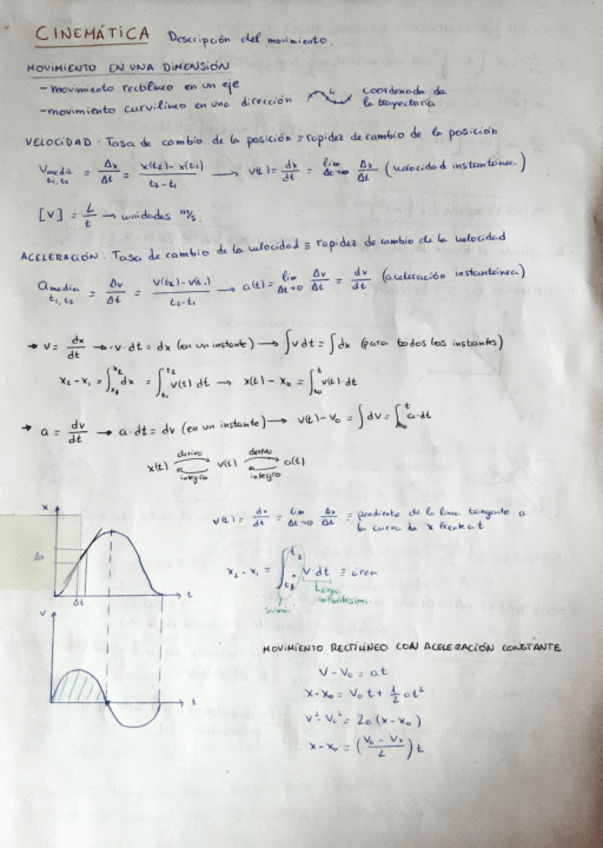 CINEMÁTICA Descripción del movimiento.
MOVIMIENTO EN UNA DIMENSIÓN
- movimiento rectilíneo en un eje
- movimiento curvilíneo en una dirección L coordenada de la trayectoria
VELOCIDAD: Tasa de cambio de la posición = rapidez de cambio de la posición
Vmedia t₁,t₂ = Δx/Δt = (x(t₂)-x(t₁))/(t₂-t₁) → v(t) = dx/dt = lim Δt→0 Δx/Δt (velocidad instantánea)
[V] = L/t → unidades m/s.
ACELERACIÓN: Tasa de cambio de la velocidad ≡ rapidez de cambio de la velocidad
amedia t₁,t₂ = Δv/Δt = (V(t₂)-V(t₁))/(t₂-t₁) → a(t) = lim Δt→0 Δv/Δt = dv/dt (aceleración instantánea)
→ v = dx/dt → v·dt = dx (en un instante) → ∫v dt = ∫dx (para todos los instantes)
x₂-x₁ = ∫x₁x₂ dx = ∫t₁t₂ v(t) dt → x(t) - x₀ = ∫₀ᵗ v(t)·dt
→ a = dv/dt → a·dt = dv (en un instante) → v(t)-v₀ = ∫dv = ∫ a·dt
x(t) derivo integro v(t) derivo integro a(t)
v(t) = dx/dt = lim Δt→0 Δx/Δt = pendiente de la línea tangente a
la curva de x frente a t
x₂-x₁ = ∫ V·dt ≡ área
Suma
x
Δx
Δt
t
V
t
MOVIMIENTO RECTILÍNEO CON ACELERACIÓN CONSTANTE
V - V₀ = at
x-x₀ = V₀t + ½at²
v²-V₀² = 2a(x-x₀)